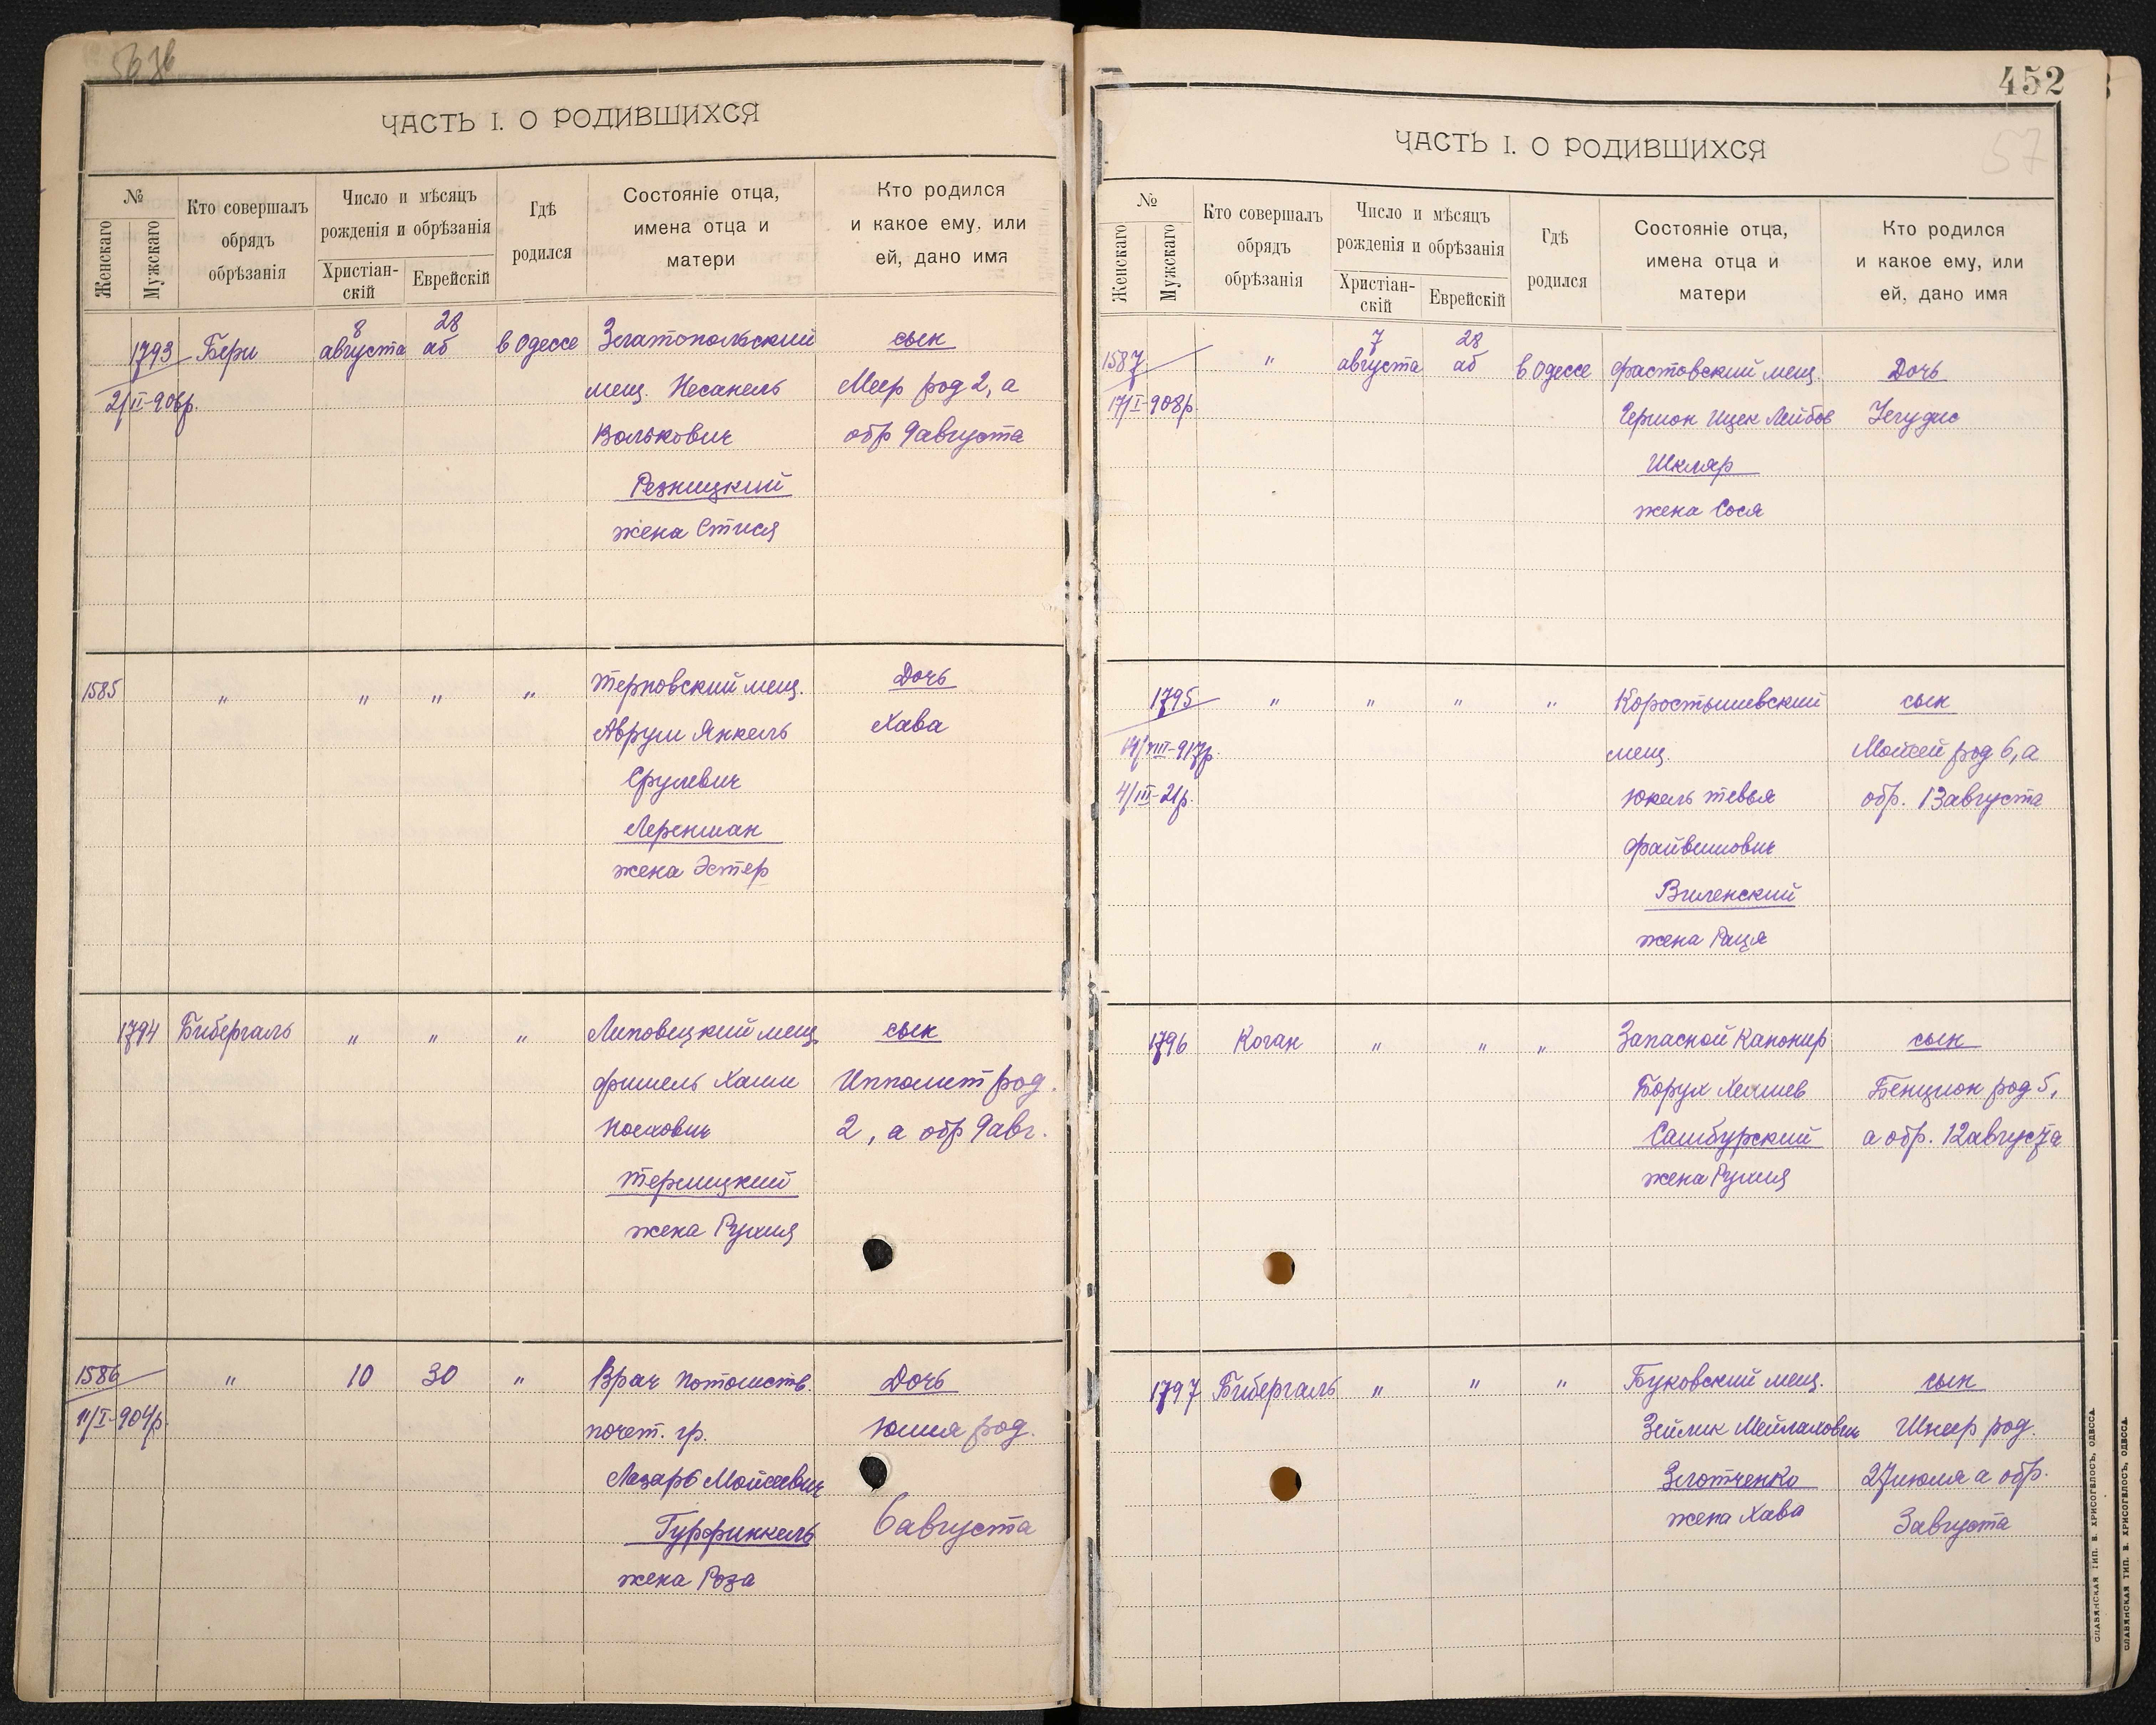 ЧАСТЬ I. О РОДИВШИХСЯ
№
Женскаго
Мужскаго
Кто совершалъ
обрядъ
обрѣзанія
Число и мѣсяцъ
рожденія и обрѣзанія
Христіан-
скій
Еврейскій
Гдѣ
родился
Состояніе отца,
имена отца и
матери
Кто родился
и какое ему, или
ей, дано имя
1793 Бери 8 августа 28 аб в Одессе Златопольский сын
2/II-906р. мещ. Несанель Меер род 2, а
Волькович обр 9 августа
Резницкий
жена Стися
1585 " " " " Терновский мещ. Дочь
Аврум Янкель Хава
Срулевич
Леренман
жена Эстер
1794 Бибергаль " " " Липовецкий мещ. сын
Фишель Хаим Ипполит род.
Носхович 2, а обр 9 авг.
Терлицкий
жена Рухля
1586 " 10 30 " Врач потомств. Дочь
11/I-904р. почет. гр. Юлия род.
Лазарь Мойсеевич
Гурфинкель 6 августа
жена Роза
452
57
ЧАСТЬ I. О РОДИВШИХСЯ
№
Женскаго
Мужскаго
Кто совершалъ
обрядъ
обрѣзанія
Число и мѣсяцъ
рожденія и обрѣзанія
Христіан-
скій
Еврейскій
Гдѣ
родился
Состояніе отца,
имена отца и
матери
Кто родился
и какое ему, или
ей, дано имя
1587 " 7 августа 28 аб в Одессе Фастовский мещ. Дочь
17/I-908р Гершон Ицек Лейбов Иегудис
Шкляр
жена Сося
1795 " " " " Коростышевский сын
14/VIII-917р. мещ. Мойсей род 6, а
4/III-21р. Юкель Тевья обр. 13 августа
Файвишович
Виленский
жена Рася
1796 Коган " " " Запасной Канонир сын
Борух Хемиев Бенцион род 5,
Самбурский а обр. 12 августа
жена Рухля
1797 Бибергаль " " " Буковский мещ. сын
Зейлик Мейлахович Шнеер род.
Злотченко 27 июля а обр.
жена Хава 3 августа
СЛАВЯНСКАЯ ТИП. В. ХРИСОГЕЛОСЪ, ОДЕССА.
СЛАВЯНСКАЯ ТИП. В. ХРИСОГЕЛОСЪ, ОДЕССА.